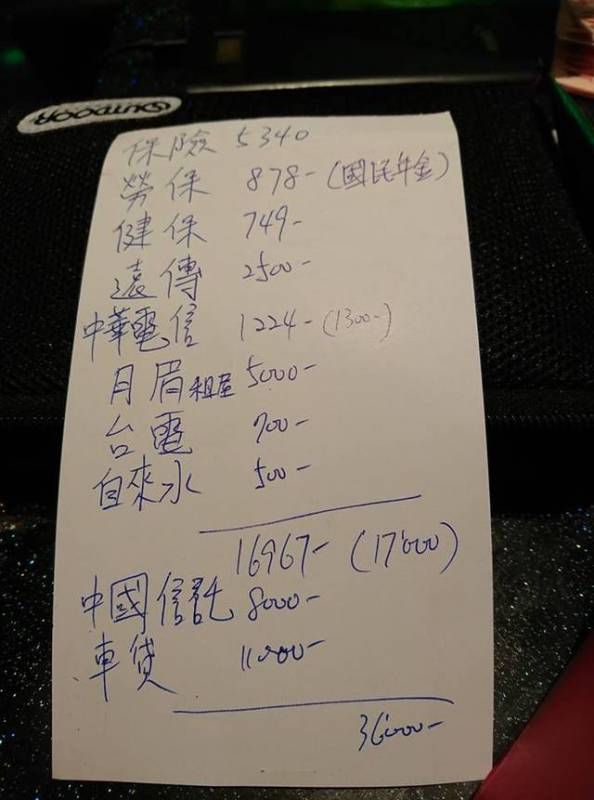 OUTDOOR
保險 5340
勞保 878-(國民年金)
健保 749-
遠傳 2500-
中華電信 1224-(1300-)
月眉租屋 5000-
台電 700-
自來水 500-
16967-(17000)
中國信託 8000-
車貸 11000-
36000-